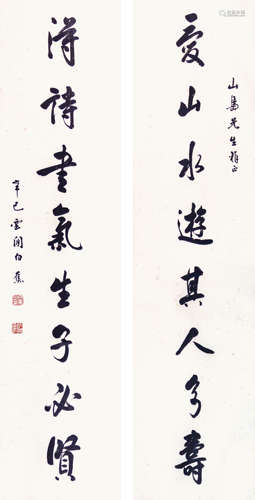 山島先生雅正
愛山水遊其人多壽
得詩書氣生子必賢
辛巳雲間白蕉